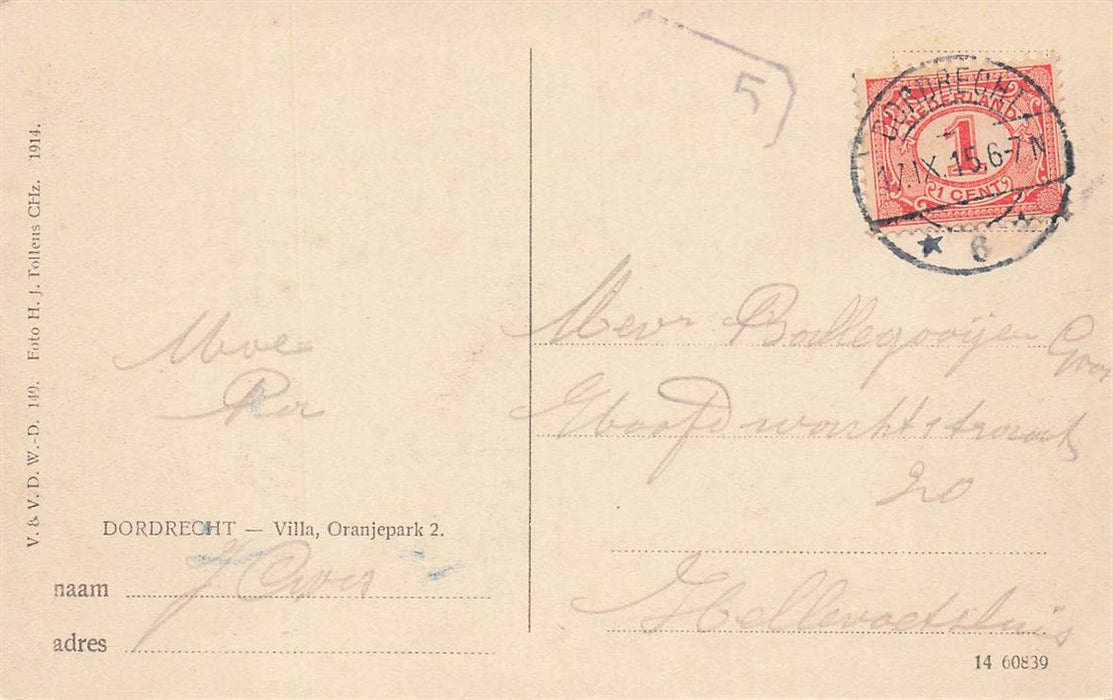 V. & V. D. W.-D. 149. Foto H. J. Tollens CHz. 1914.
5
DORDRECHT
17.IX.15.6-7N
6
NEDERLAND
1
1 CENT
Mevr Ballegooijen
Hoofdwachtstraat
20
Hellevoetsluis
Moe
DORDRECHT — Villa, Oranjepark 2.
naam
adres
14 60839